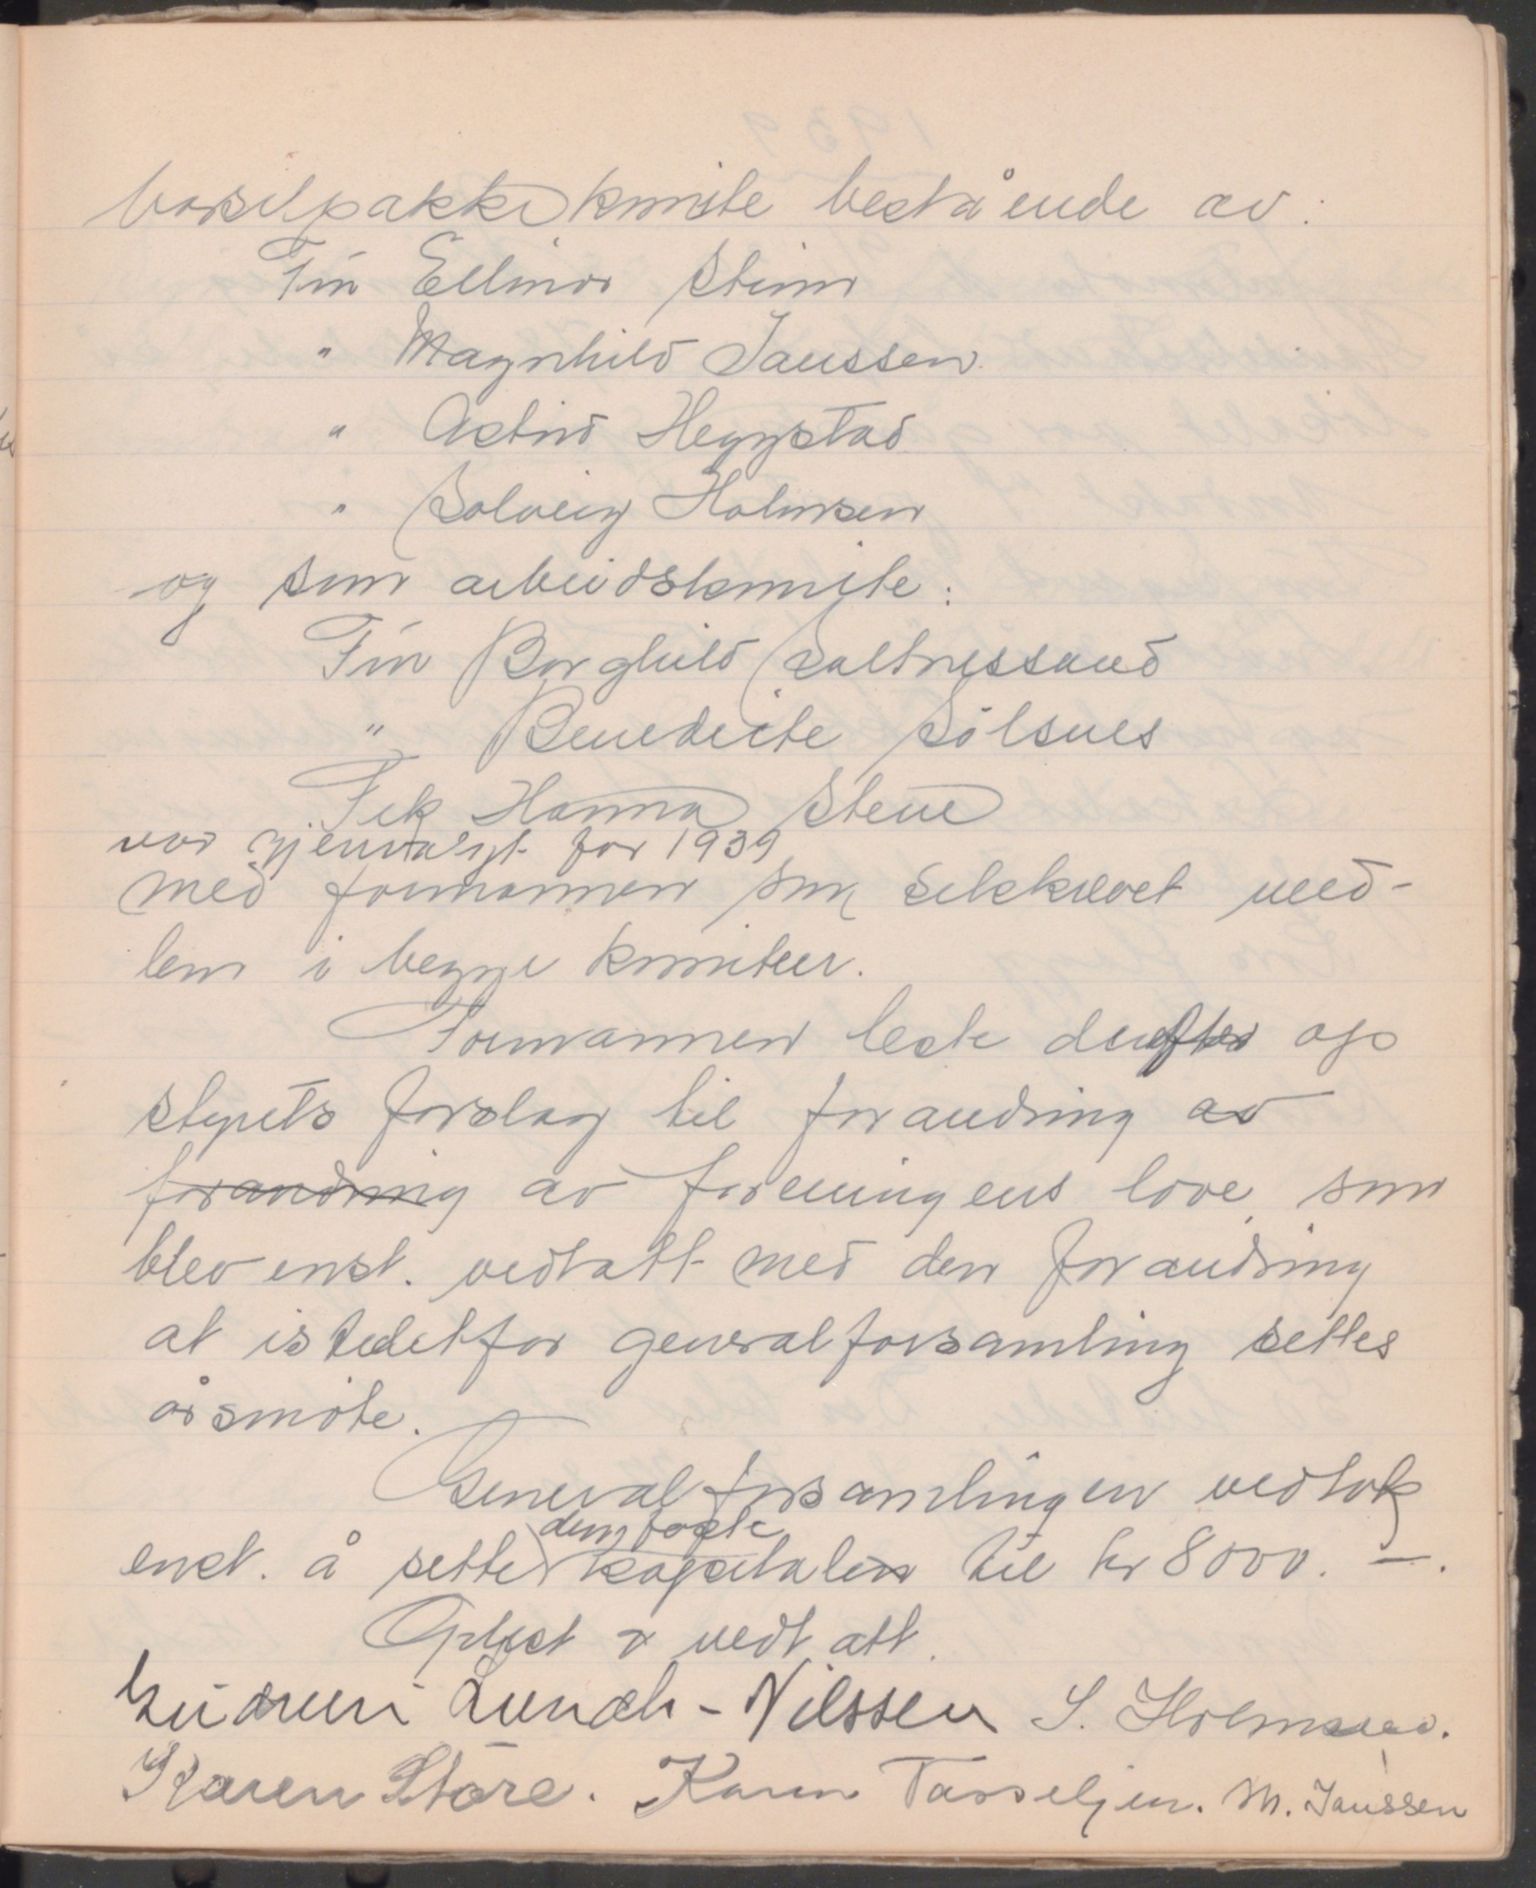 barselpakkekomite bestående av:
Frú Ellinor Steim
" Magnhild Janssen
" Astrid Heggstad
" Solveig Holmsen
og som arbeidskomite:
Frú Borghild Saltnessand
" Benedicte Sølsnes
Frk Hanna Stene
var gjenvalgt for 1939
med formannen som selskrevet med-
lem i begge komiteer.
Formannen leste derefter op
styrets forslag til forandring av
forandring av foreningens love, som
blev enst. vedtatt med den forandring
at istedetfor generalforsamling settes
årsmöte.
Generalforsamlingen vedtok
den faste
enst. å sette kapitalen til kr 8000.—.
Oplest & vedtatt.
Gudrun Lunch-Nilssen S. Holmsen.
Karen Störe. Karen Tasseljen. M. Janssen